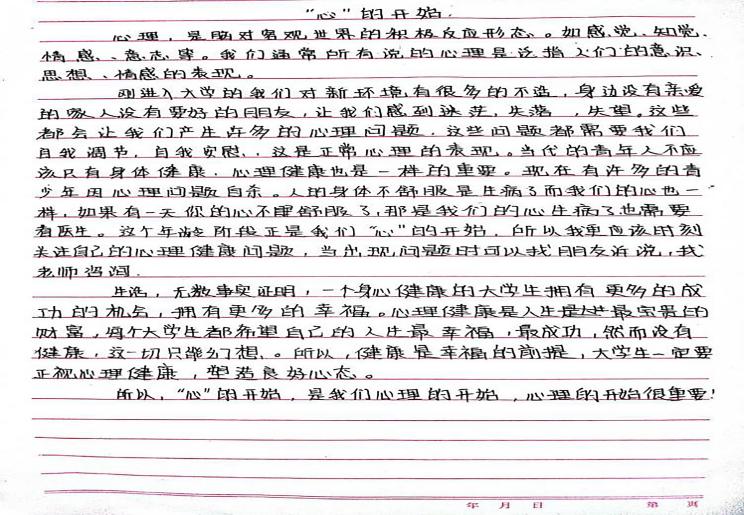 “心”的开始.
心理，是脑对客观世界的积极反应形态。如感觉、知觉、
情感、意志等。我们通常所有说的心理是泛指人们的意识、
思想、情感的表现。
刚进入大学的我们对新环境有很多的不适，身边没有亲爱
的家人没有要好的朋友，让我们感到迷茫，失落，失望。这些
都会让我们产生许多的心理问题．这些问题都需要我们
自我调节，自我安慰，这是正常心理的表现。当代的青年人不应
该只有身体健康，心理健康也是一样的重要。现在有许多的青
少年因心理问题自杀。人的身体不舒服是生病了而我们的心也一
样，如果有一天你的心不舒服了，那是我们的心生病了也需要
看医生。这个年龄阶段正是我们“心”的开始，所以我更应该时刻
关注自己的心理健康问题，当出现问题时可以找朋友诉说，找
老师咨询．
生活，无数事实证明，一个身心健康的大学生拥有更多的成
功的机会，拥有更多的幸福。心理健康是人生最宝贵的
财富，每个大学生都希望自己的人生最幸福，最成功，然而没有
健康，这一切只能幻想。所以，健康是幸福的前提，大学生一定要
正视心理健康，塑造良好心态。
所以，“心”的开始，是我们心理的开始，心理的开始很重要！
年 月 日 第 页